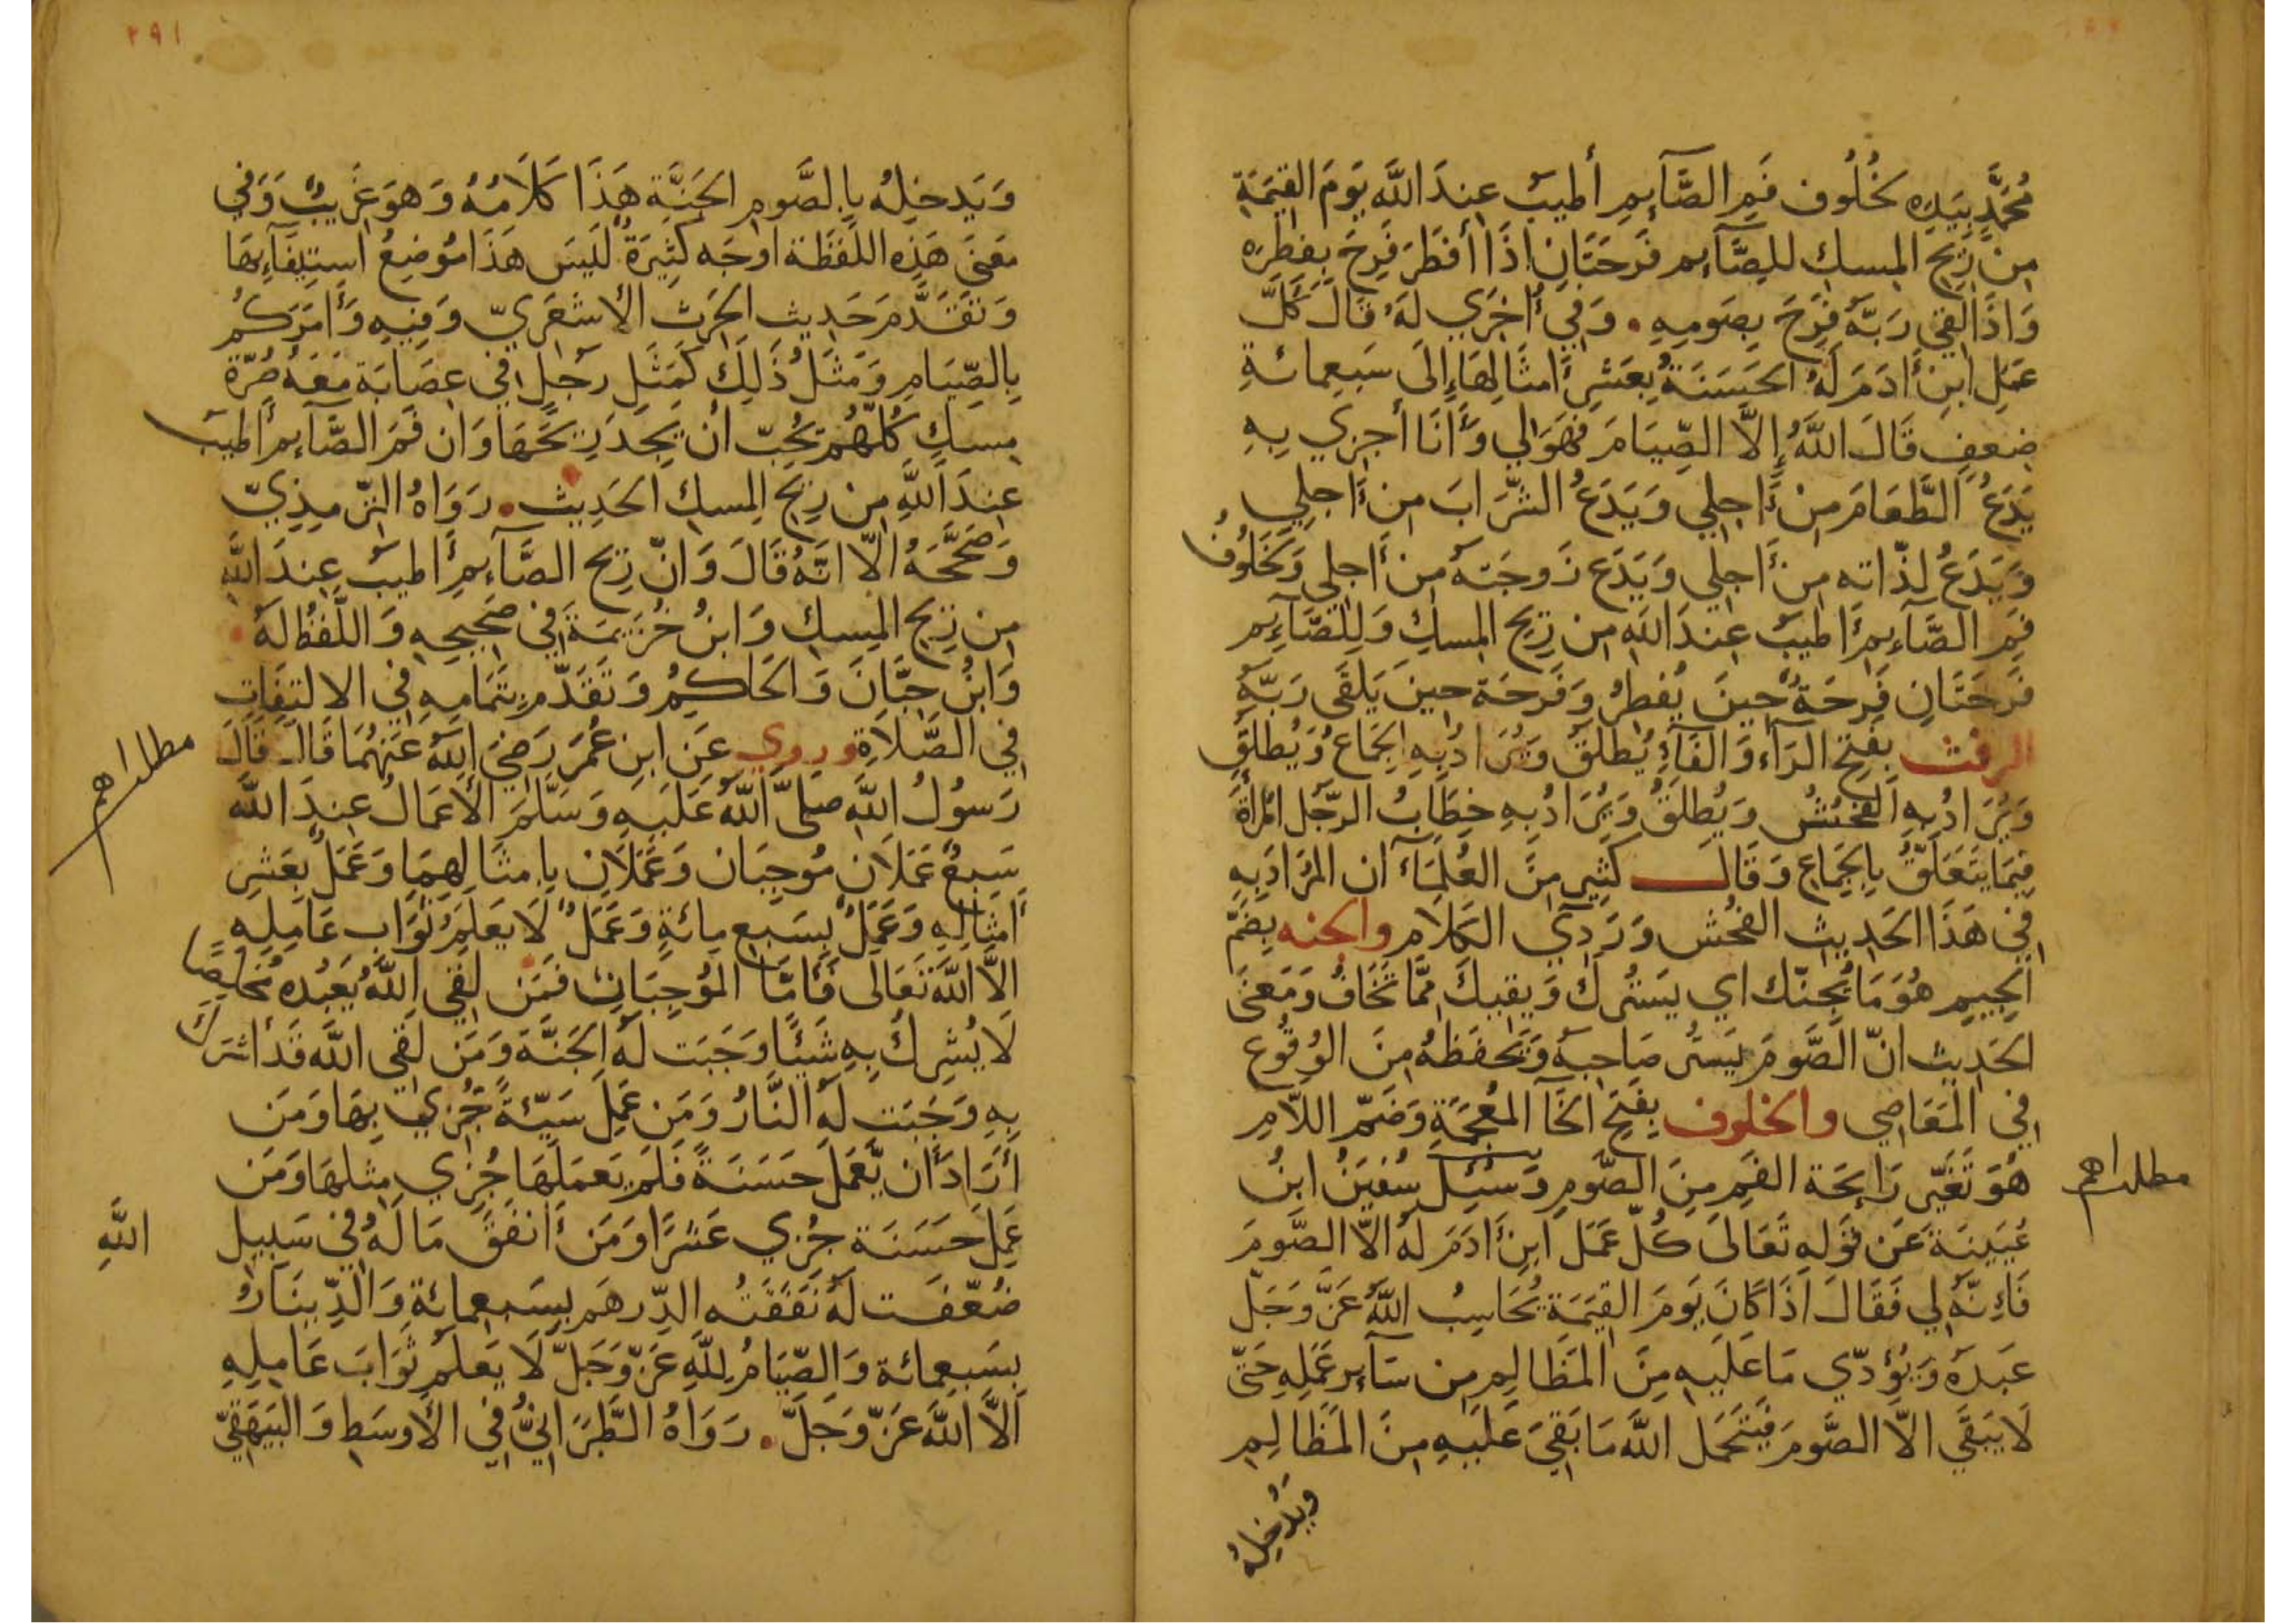 مُحَمَّدٍ بِيَدِهِ لَخُلُوف فَمِ الصَّآئِمِ أَطيَبُ عِندَ اللَّه يَومَ القِيمَةِ
مِن رِيحِ المِسكِ لِلصَّآئِم فَرحَتَانِ اِذَا أَفطَرَ فَرِحَ بِفِطرِه
وَاذَا لَقِيَ رَبَّهُ فَرِحَ بِصَومِهِ . وَفِي أُخرَي لَهُ قَالَ كُلُّ
عَمَلِ ابنِ أَادَمَ لَهُ الحَسَنَةُ بِعَشرِ أَمثَالِهَا إِلَى سَبعِمائةِ
ضِعفٍ قَالَ اللَّهُ إِلاَّ الصِّيَامَ فَهوَ لِي وَأَنَا أَجزِي بِهِ
يَدَعُ الطَّعَامَ مِن أَجلِي وَيَدَعُ الشَّرَابَ مِن أَجلِي
وَيَدَعُ لذّاته مِن أَجلِي وَيَدَع زَوجَتَهُ مِن أَجلِي وَلَخَلُوفُ
فَمِ الصَّآئِمِ أَطيَبُ عِندَ اللَّهِ مِن رِيحِ المِسكِ وَلِلصَّآئِمِ
فَرحَتَانِ فَرحَةٌ حِينَ يُفطِرُ وَفَرحَة حِينَ يَلقَى رَبَّهُ
الرفث بِفَتحِ الرَّآء وَالفَآءِ يُطلَقُ وَيُرَادُ بِهِ الجِمَاعُ وَيُطلَقُ
وَيُرَادُ بِهِ الفُحشُ وَيُطلَقُ وَيُرَادُ بِهِ خِطَابُ الرَّجُل المَرأَةَ
فِيمَا يَتَعَلَّقُ بِالجِمَاعِ وَقَالَ كَثِير مِنَ العُلَمَآءِ ان المُرَادَ بِهِ
فِي هَذَا الحَدِيثِ الفُحش وَرَدِي الكَلَام والجنه بِضَمّ
الجِيمِ هُوَ مَا يُجِنّك اي يَستُركَ وَيقيكَ مِمَّا تَخَافُ وَمَعنَى
الحَدِيث انّ الصَّومَ يَستُر صَاحِبَهُ وَيَحفَظهُ مِنَ الوُقُوع
فِي المَعَاصِي والخلوف بِفَتحِ الخَا المُعجَمَةِ وَضَمّ اللاَّمِ
هُوَ تَغَيّر رَايِحَة الفَمِ مِنَ الصَّومِ وَسُئِلَ سُفيَنُ ابنُ
مطلب اهم
عُيَينَة عَن قَولِهِ تَعَالَى كُلّ عَمَل ابنِ أَادَمَ لَهُ الاّ الصَّومَ
فَاِنّهُ لِي فَقَالَ اذَا كَانَ يَومَ القِيَمَة يُحَاسِبُ اللَّهُ عَزَّ وَجَلّ
عَبدَهُ وَيُؤَدّي مَا عَلَيهِ مِنَ المَظَالِم مِن سَآئِر عَمَلِهِ حَتّى
لَا يَبقَى الاَّ الصَّومَ فَيَتَحَمّل اللَّه مَا بَقِيَ عَلَيهِ مِنَ المَظَالِمِ
وَيُدخِلُهُ
٢٩١
وَيَدخِلهُ بِالصَّومِ الجَنَّة هَذَا كَلَامُهُ وَهوَ غَرِيبٌ وَفِي
مَعنَى هَذِهِ اللَّفظَة اوجَه كَثِيرَةٌ لَيسَ هَذَا مَوضِعُ استِيفَآئِهَا
وَتَقَدَّمَ حَدِيث الحَرث الاشعَرِيّ وَفِيهِ وَأَامُرَكُم
بِالصِّيَامِ وَمَثَلُ ذَلِكَ كَمَثَلِ رَجُلٍ فِي عِصَابَة مَعَهُ صُرّة
مِسكٍ كُلّهُم يُحِبّ ان يَجِدَ رِيحَهَا وَان فَمَ الصَّآئِم أَطيَب
عِندَ اللَّهِ مِن رِيحِ المِسكِ الحَدِيث . رَوَاهُ التِّرمِذِيّ
وَصَحَّحَهُ الاّ انّهُ قَالَ وَانّ رِيح الصَّآئِمِ أَطيَب عِندَ اللَّهِ
مِن رِيحِ المِسكِ وَابنُ خُزَيمَة فِي صَحِيحِهِ وَاللَّفظُ لَهُ
وَابنُ حِبَّانَ وَالحَاكِمُ وَتَقَدّم بِتَمَامِهِ فِي الالتِفَاتِ
فِي الصَّلَاةِ وروي عَنِ ابنِ عُمَرَ رَضِيَ اللَّهُ عَنهُمَا قَالَ قَالَ
مطلب اهم
رَسولُ اللَّهِ صلى اللَّهُ عَلَيهِ وَسَلَّمَ الأَعمَالُ عِندَ اللَّه
سَبعٌ عَمَلَانِ مُوجِبَان وَعَمَلَانِ بِامثَالِهِمَا وَعَمَلٌ بِعَشرِ
أَمثَالِهِ وَعَمَلٌ بِسَبعِ مِائةٍ وَعَمَلٌ لَا يَعلَمُ ثَوَاب عَامِلِهِ
الاَّ اللَّهُ تَعَالَى فَأَمَّا المُوجِبَانِ فَمَن لَقِيَ اللَّهَ يَعبُدُه مُخلِصًا
لَا يُشرِكُ بِهِ شَيئًا وَجَبَت لَهُ الجَنَّة وَمَن لَقِيَ اللَّهَ قَد أَشرَكَ
بِهِ وَجَبَت لَه النَّارُ وَمَن عَمِلَ سَيّئَةً جُزِيَ بِهَا وَمَن
أَرَادَ أَن يَّعمَلَ حَسَنَةً فَلَم يَعمَلهَا جُزِي مِثلهَا وَمَن
عَمِلَ حَسَنَة جُزِي عَشرًا وَمَن أَنفَقَ مَا لَهُ فِي سَبِيلِ اللَّهِ
ضُعّفَت لَهُ نَفَقَتُه الدِّرهَم بِسَبعِمائةٍ وَالدِّينَارُ
بِسَبعِمائة وَالصِّيَامُ لِلَّهِ عَزّ وَجَلّ لَا يَعلَمُ ثَوَابَ عَامِلِهِ
الاَّ اللَّهُ عَزّ وَجَلَّ . رَوَاهُ الطَّبَرَانِيُّ فِي الأَوسَطِ وَالبَيهَقِيّ